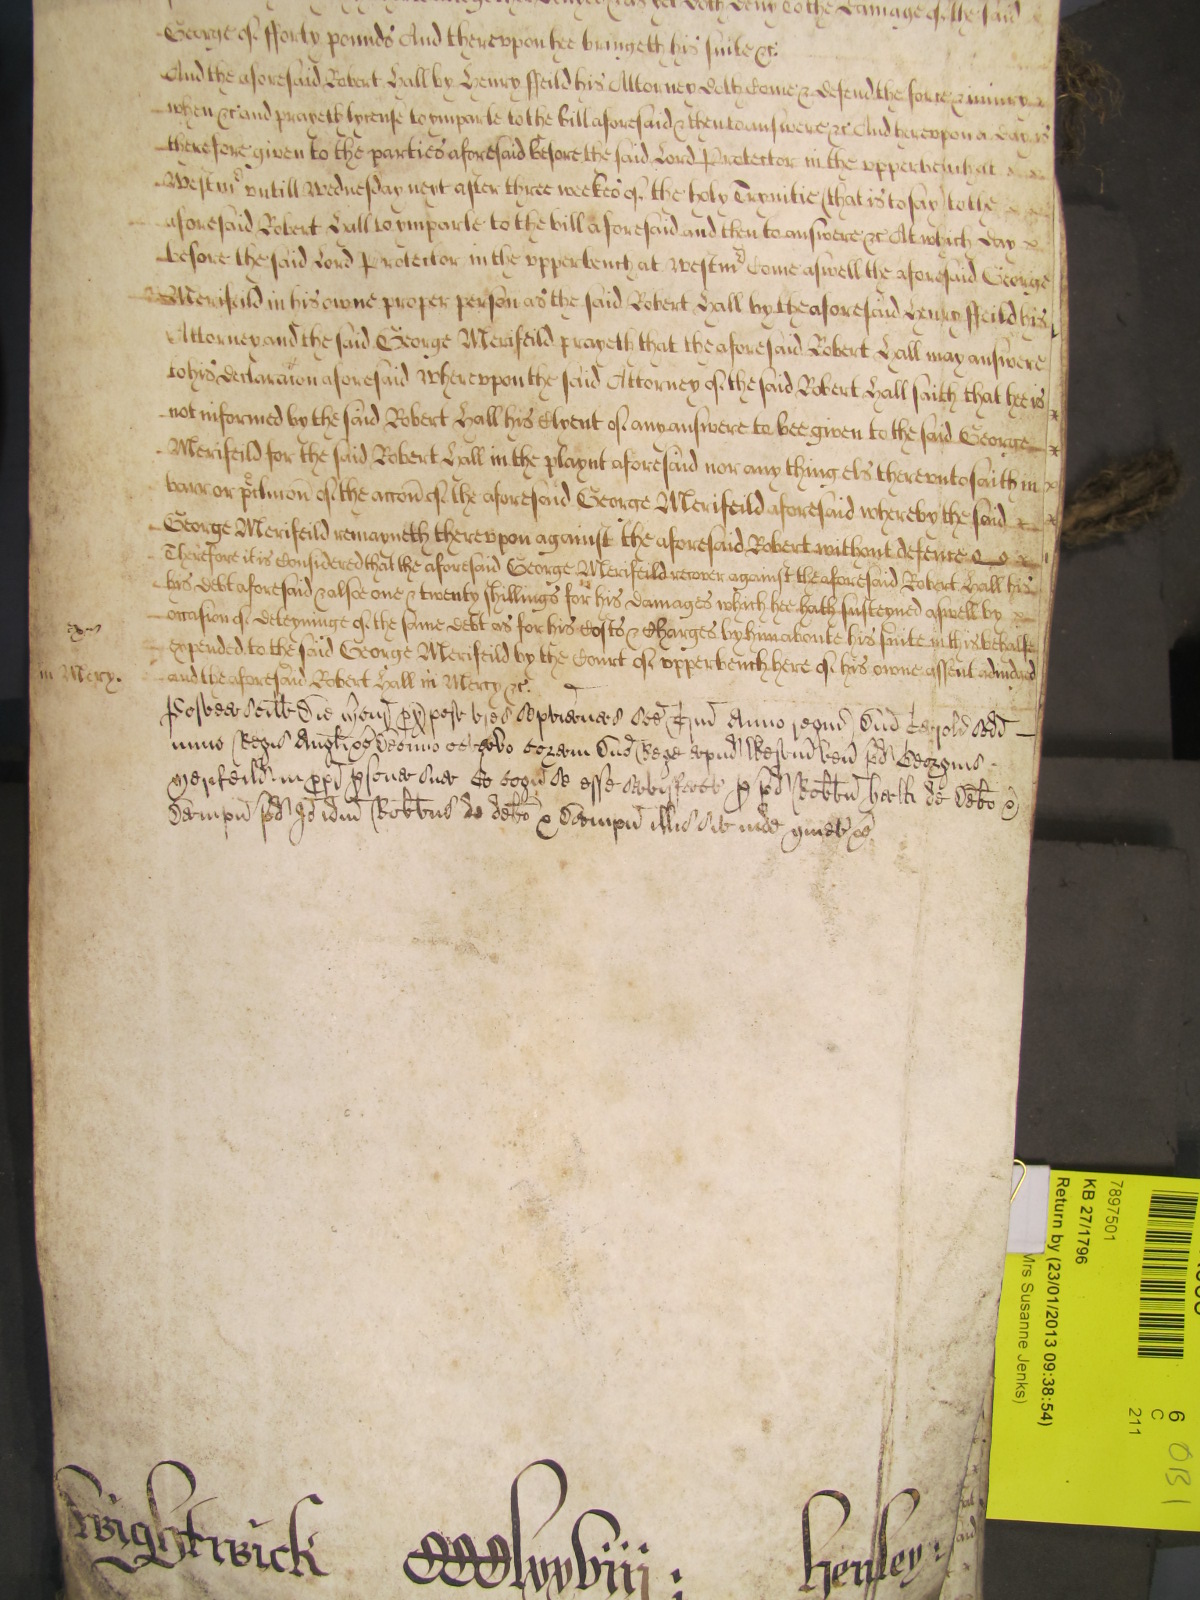 doth deny to the Damage of the said
George of fforty pounds And thereupon hee bringeth his suite &c:
And the aforesaid Robert Hall by Henry ffeild his Attorney doth come & defend the force & iniury
when &c and prayeth lycense to ymparle to the bill aforesaid & then to answere &c And hereupon a day is
therefore given to the parties aforesaid before the said Lord Protector in the upperbench at
Westmr untill Wednesday next after three weekes of the holy Trynitie (that is to say) to the
aforesaid Robert Hall to ymparle to the bill aforesaid and then to answere &c At which day
before the said Lord Protector in the upperbench at Westmr Come aswell the aforesaid George
Merifeild in his owne proper person as the said Robert Hall by the aforesaid Henry ffeild his
Attorney and the said George Merifeild prayeth that the aforesaid Robert Hall may answere
to his declaracion aforesaid Whereupon the said Attorney of the said Robert Hall saith that hee is
not informed by the said Robert Hall his Clyent of any answere to bee given to the said George
Merifeild for the said Robert Hall in the playnt aforesaid nor any thing els thereunto saith in
barr or of the accon of the aforesaid George Merifeild aforesaid whereby the said
George Merifeild remayneth thereupon against the aforesaid Robert without defence
Therefore it is Considered that the aforesaid George Merifeild recover against the aforesaid Robert Hall his
his debt aforesaid & alsoe one & twenty shillings for his damages which hee hath susteyned aswell by
occasion of deteyninge of the same debt as for his Costs & Charges by him aboute his suite in this behalfe
expended to the said George Merifeild by the Court of upperbench here of his owne assent adiudged
in Mercy.
and the aforesaid Robert Hall in Mercy &c.
Postea scilt die px post tres Anno regni Dni Caroli scdi
nunc Regis Angl &c decimo octavo coram Dno Rege apud Westm ven pd Georgius
Merifeild in ppr psona sua Et cogn se esse p pd Robtu Hall de debo &
dampn pd Io idm Robtus de debo & dampn illis sit inde quiet &c
Wightwick CCClxxviij: Henley:
7897501
KB 27/1796
Return by (23/01/2013 09:38:54)
Mrs Susanne Jenks)
6
C
211
OB1